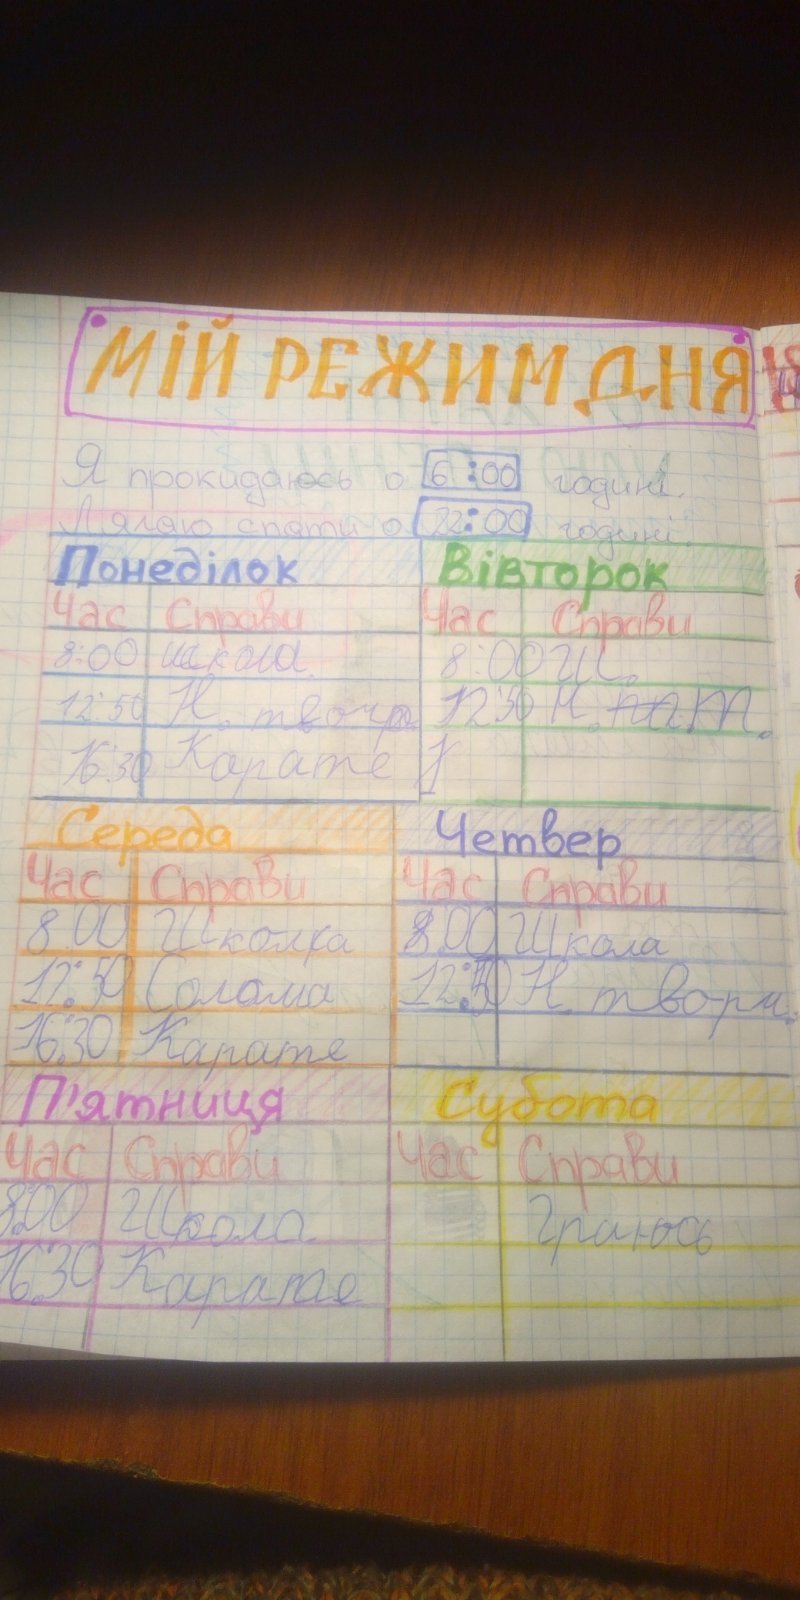 МІЙ РЕЖИМ ДНЯ
Я прокидаюсь о 6:00 годині.
Лягаю спати о 22:00 годині.
Понеділок
Час Справи
8:00 школа
12:50 Н. твор
16:30 Карате
Вівторок
Час Справи
8:00 Ш.
12:50 Н. т.
Середа
Час Справи
8.00 Школа
12:50 Солома
16:30 Карате
Четвер
Час Справи
8.00 Школа
12:50 Н. творч.
П'ятниця
Час Справи
8:00 Школа
16:30 Карате
Субота
Час Справи
Граюсь